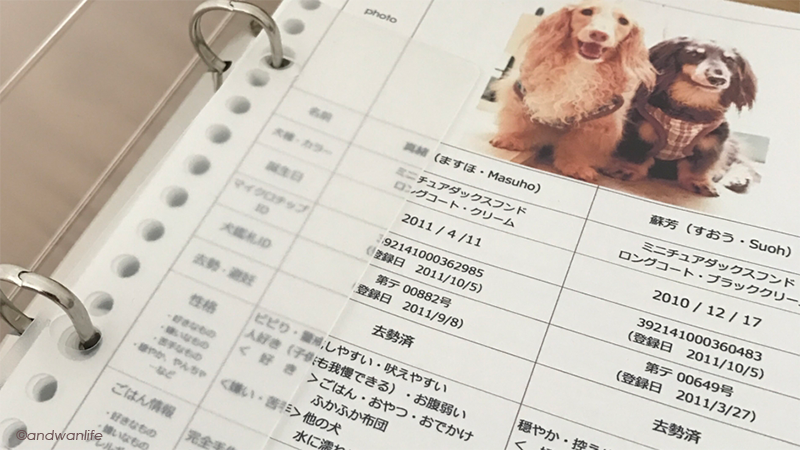 photo
名前
犬種・カラー
誕生日
マイクロチップ
ID
犬鑑札ID
去勢・避妊
性格
・好きなもの
・嫌いなもの
・苦手なもの
・穏やか、やんちゃ
…など
ごはん情報
・好きなもの
・嫌いなもの
(ますほ・Masuho)
ミニチュアダックスフンド
ロングコート・クリーム
2011 / 4 /11
392141000362985
(登録日 2011/10/5)
第テ 00882号
(登録日 2011/9/8)
去勢済
ビビり・
しやすい・吠えやすい
人好き
も我慢できる)・お腹弱い
く 好 き >ごはん・おやつ・おでかけ
ふかふか布団
く嫌い・苦手>他の犬
水に濡れ
完全手
蘇芳 (すおう・Suoh)
ミニチュアダックスフンド
ロングコート・ブラッククリーム
2010 / 12 / 17
392141000360483
(登録日 2011/10/5)
第テ 00649号
(登録日 2011/3/27)
去勢済
穏やか・控え
©andwanlife